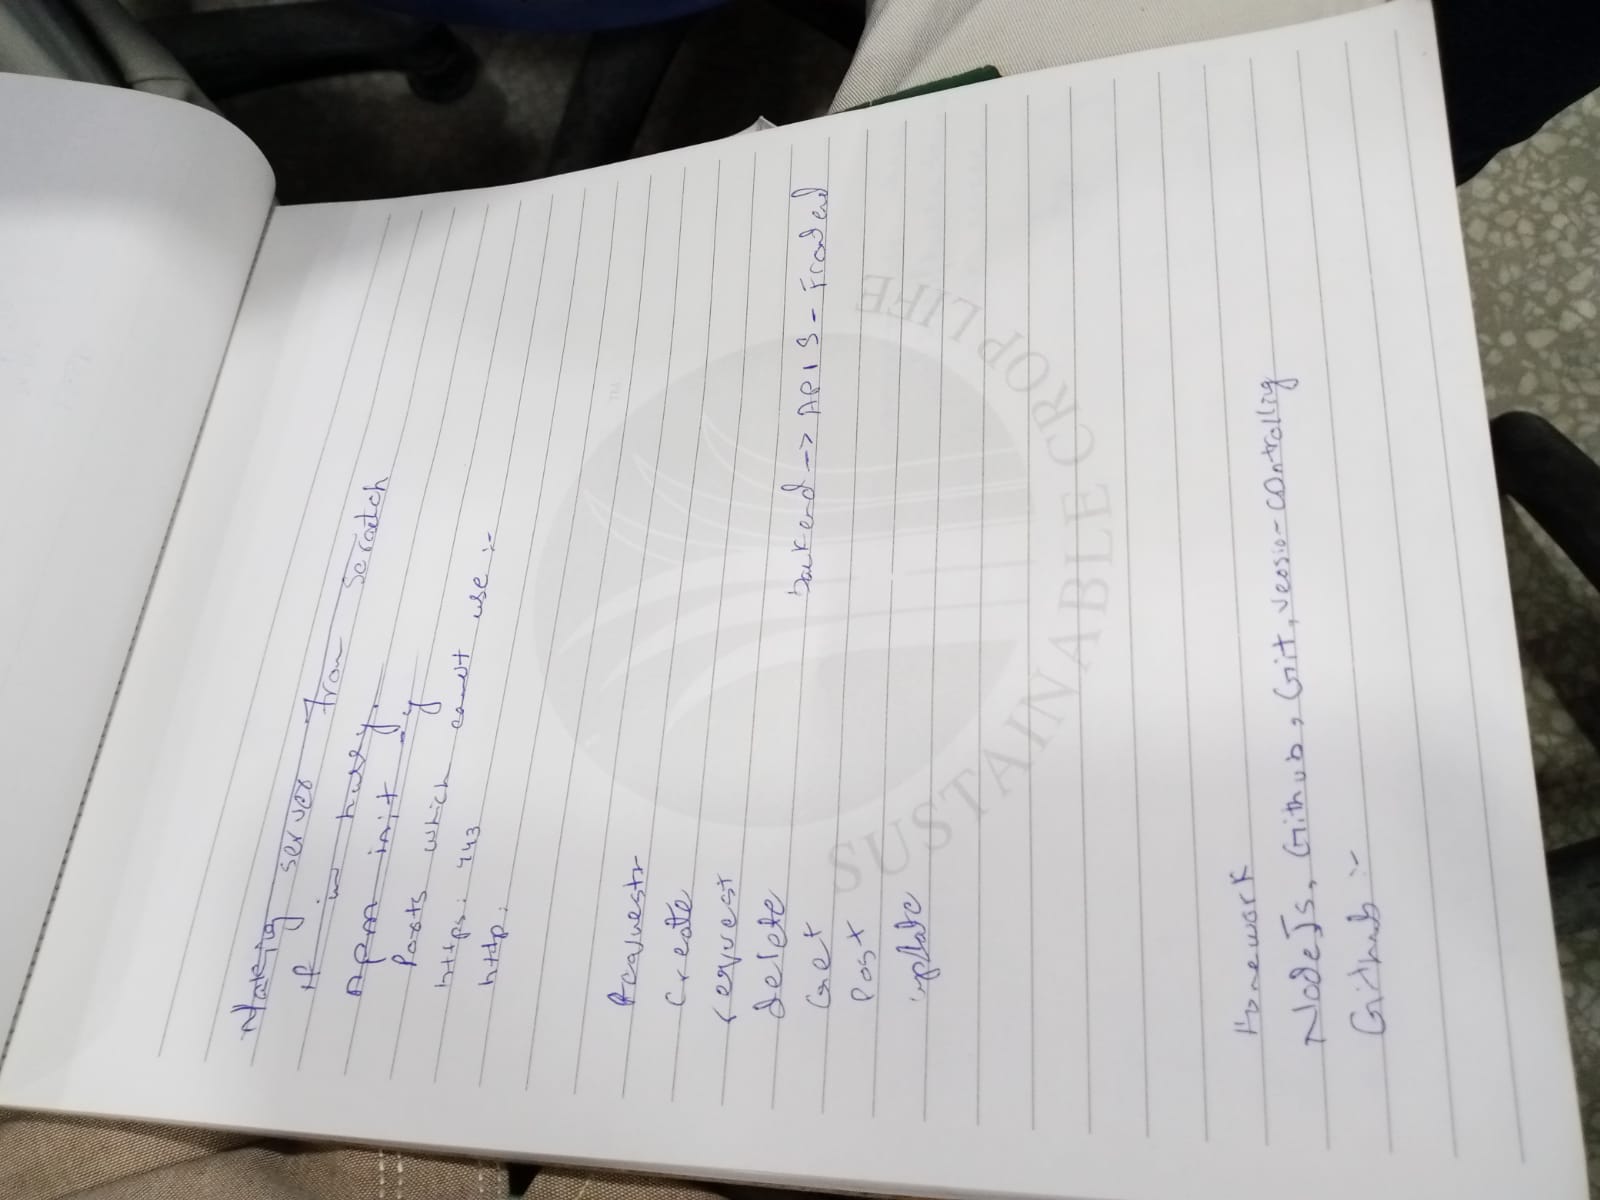 Making server from Scratch
If in hurry.
npm init -y
Ports which cannot use :-
https: 443
http:
Request
Create
request
delete
Get
Post
update
backend -> APIS - Frontend
Homework
NodeJs, Github, Git, version-controlling
Github :-
SUSTAINABLE CROP LIFE
TM